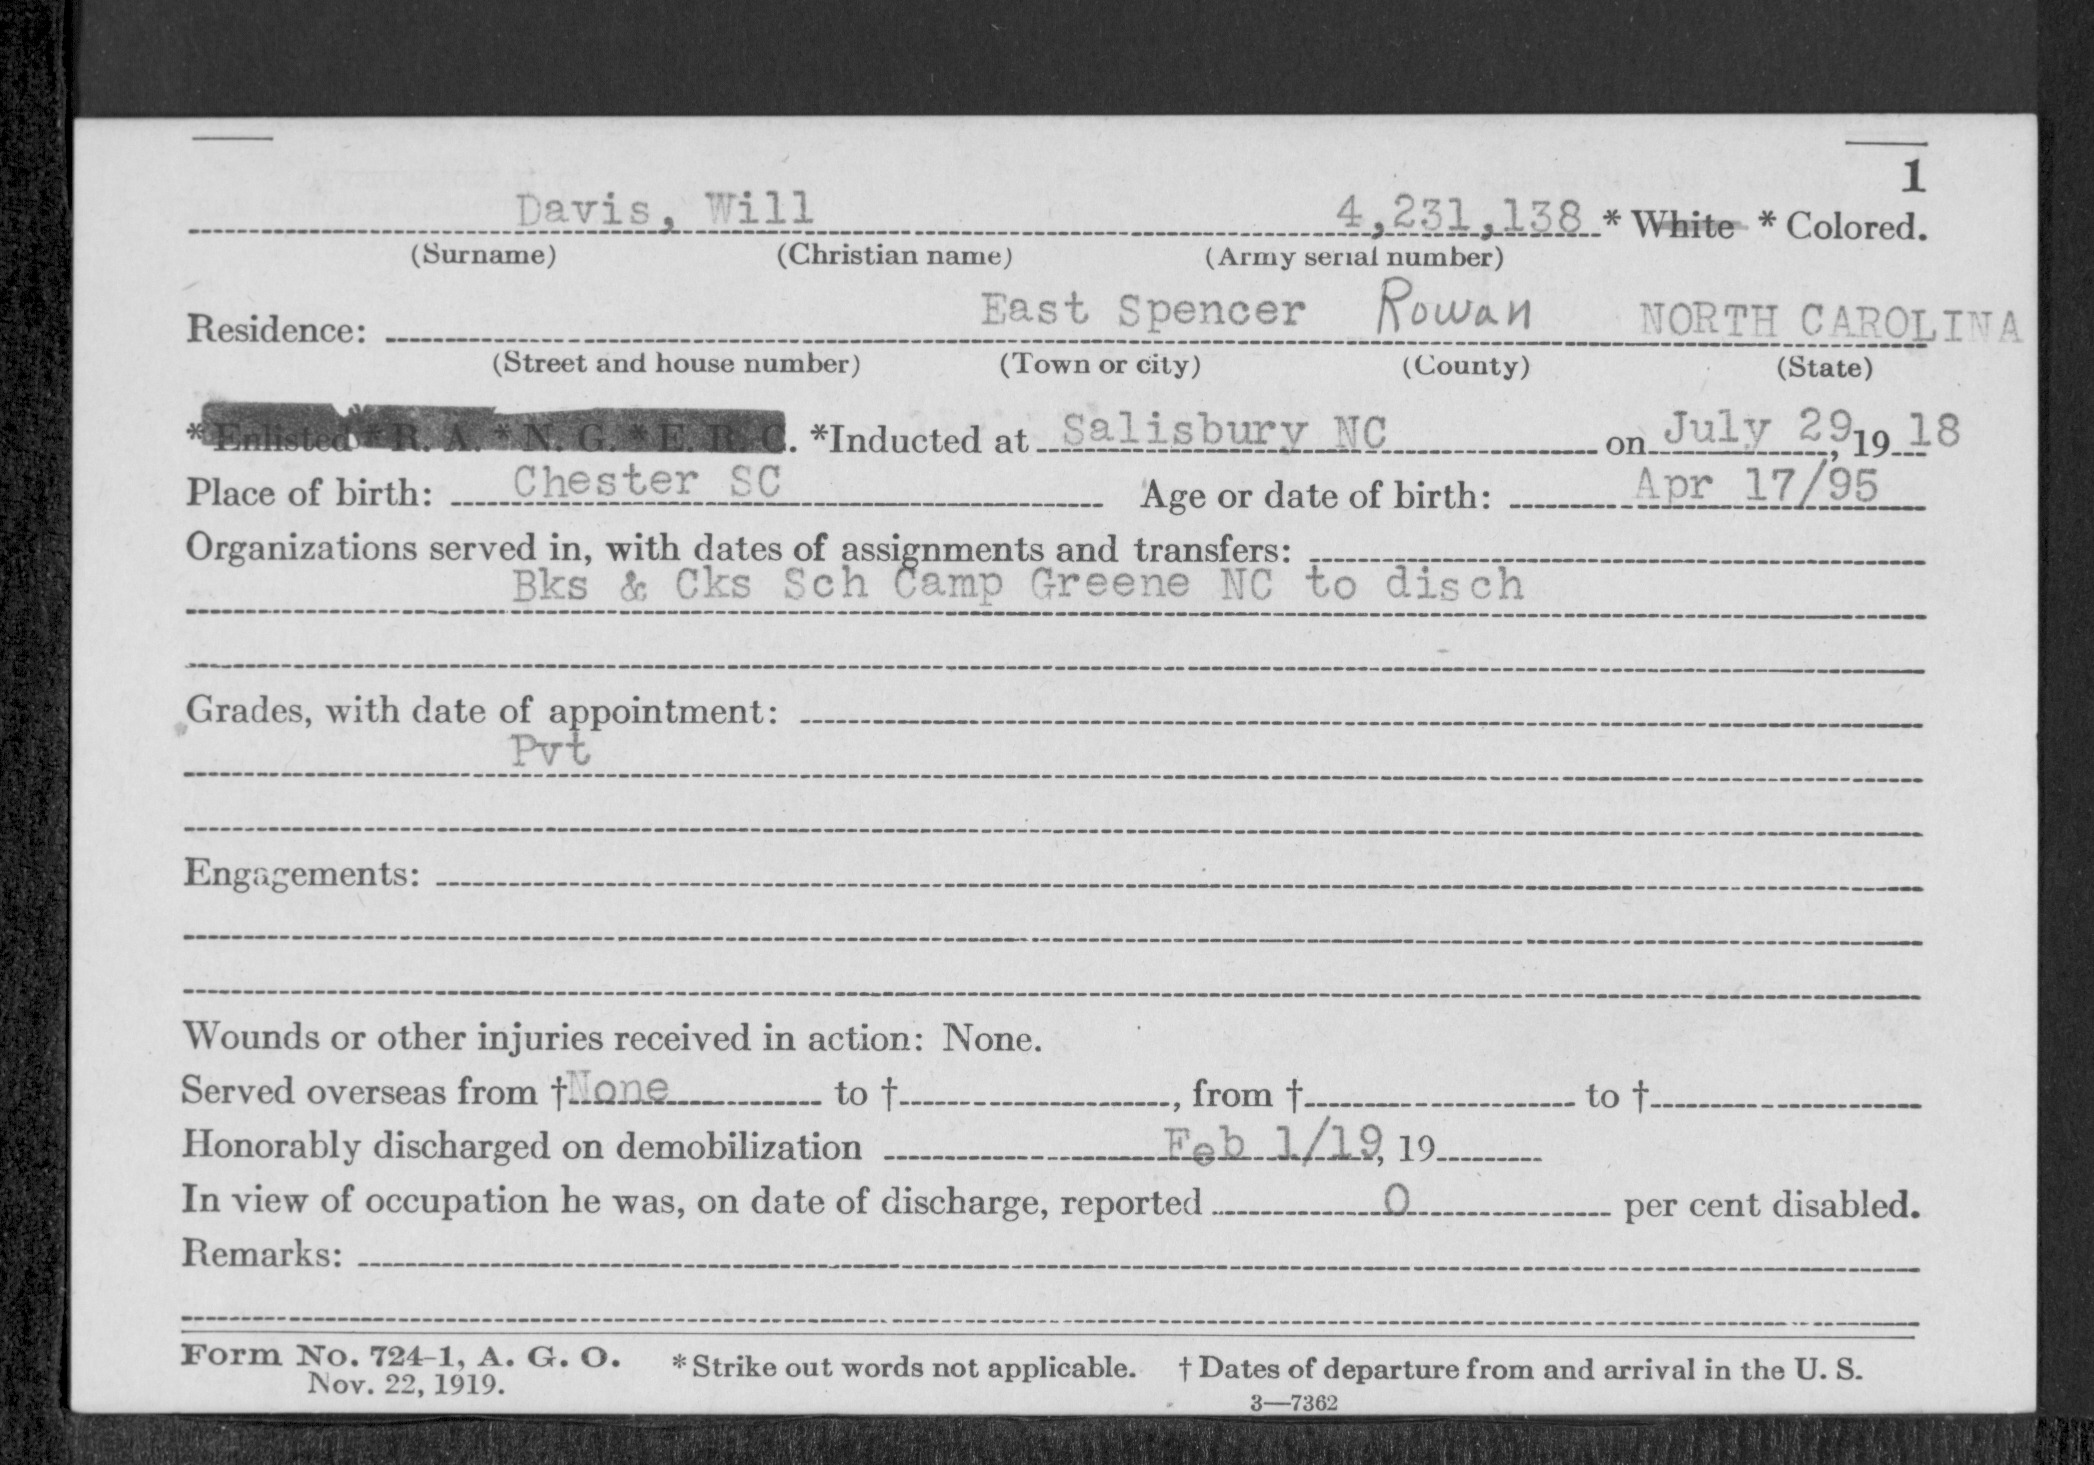 1
Davis, Will 4,231,138 * White * Colored.
(Surname) (Christian name) (Army serial number)
Residence: East Spencer Rowan NORTH CAROLINA
(Street and house number) (Town or city) (County) (State)
* Enlisted * R. A. * N. G. * E. R. C. *Inducted at Salisbury NC on July 29, 19 18
Place of birth: Chester SC Age or date of birth: Apr 17/95
Organizations served in, with dates of assignments and transfers:
Bks & Cks Sch Camp Greene NC to disch
Grades, with date of appointment:
Pvt
Engagements:
Wounds or other injuries received in action: None.
Served overseas from †None to †, from † to †
Honorably discharged on demobilization Feb 1/19, 19
In view of occupation he was, on date of discharge, reported 0 per cent disabled.
Remarks:
Form No. 724-1, A. G. O. * Strike out words not applicable. † Dates of departure from and arrival in the U. S.
Nov. 22, 1919.
3—7362